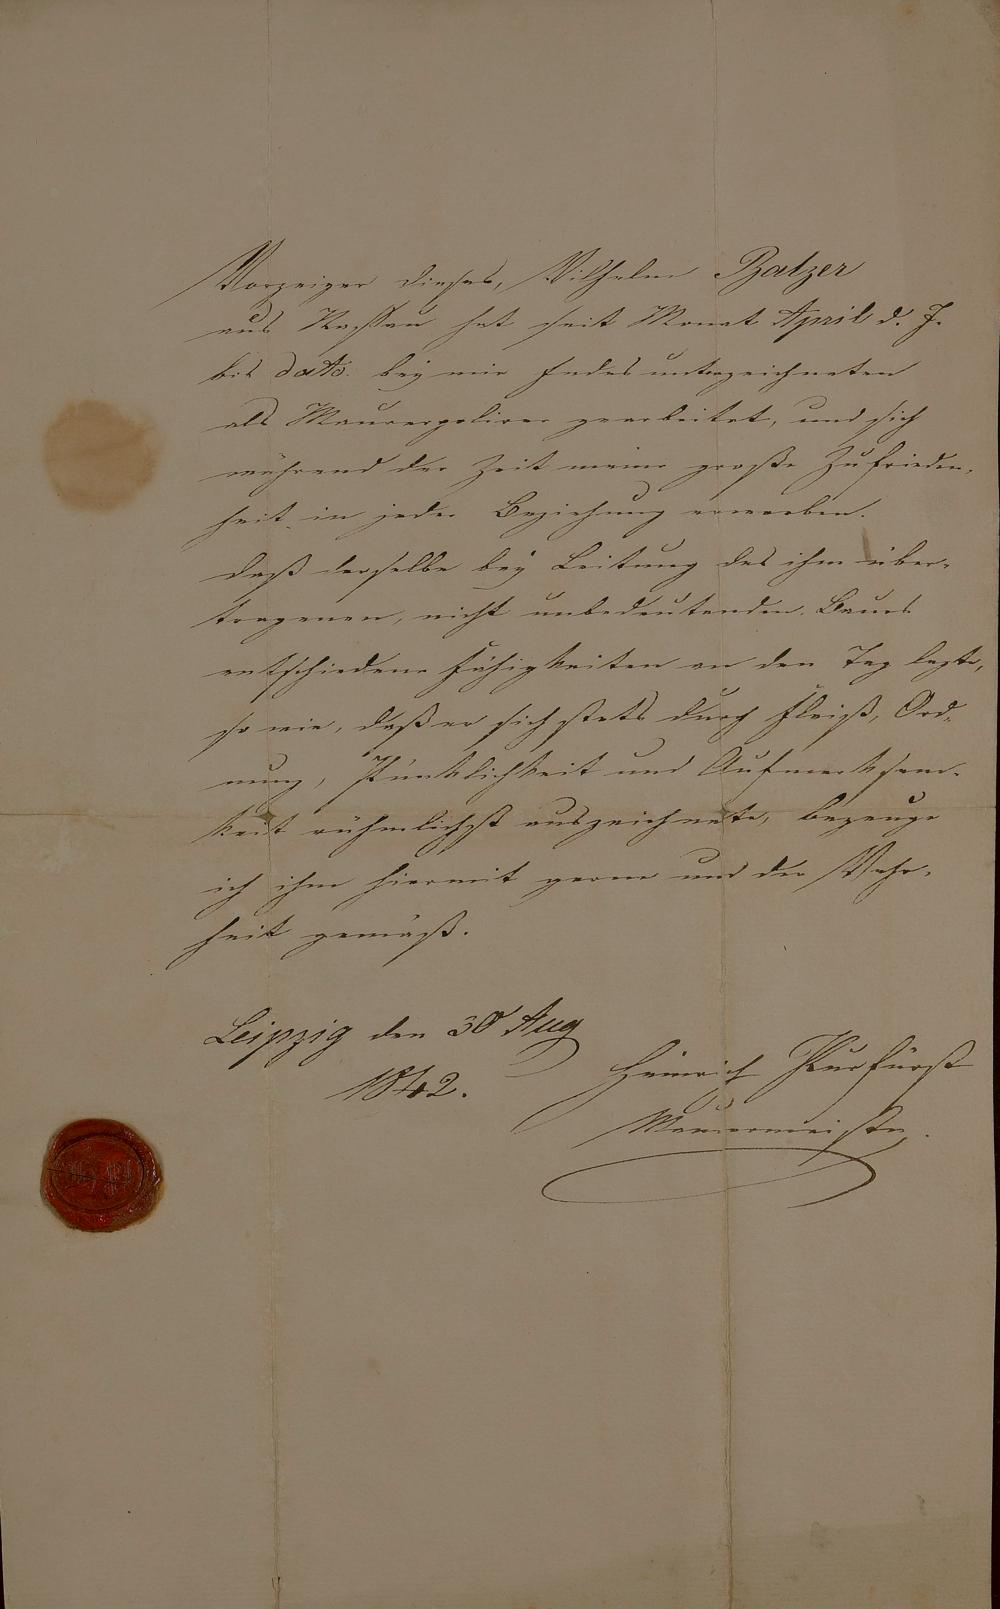 Vorzeiger dieses, Wilhelm Batzer
aus Nassau hat seit Monat April d. J.
bis dato bey mir Endesunterzeichneten
als Maurerpolirer gearbeitet, und sich
während der Zeit meine große Zufrieden-
heit in jeder Beziehung erworben.
Daß derselbe bey Leitung des ihm über-
tragenen, nicht unbedeutenden Baues
entschiedene Fähigkeiten an den Tag legte,
so wie, daß er sich stets durch Fleiß, Ord-
nung, Pünktlichkeit und Aufmerksam-
keit rühmlichst auszeichnete, bezeuge
ich ihm hiermit gerne und der Wahr-
heit gemäß.
Leipzig den 30 Aug
1842.
Heinrich Purfürst
Maurermeister.